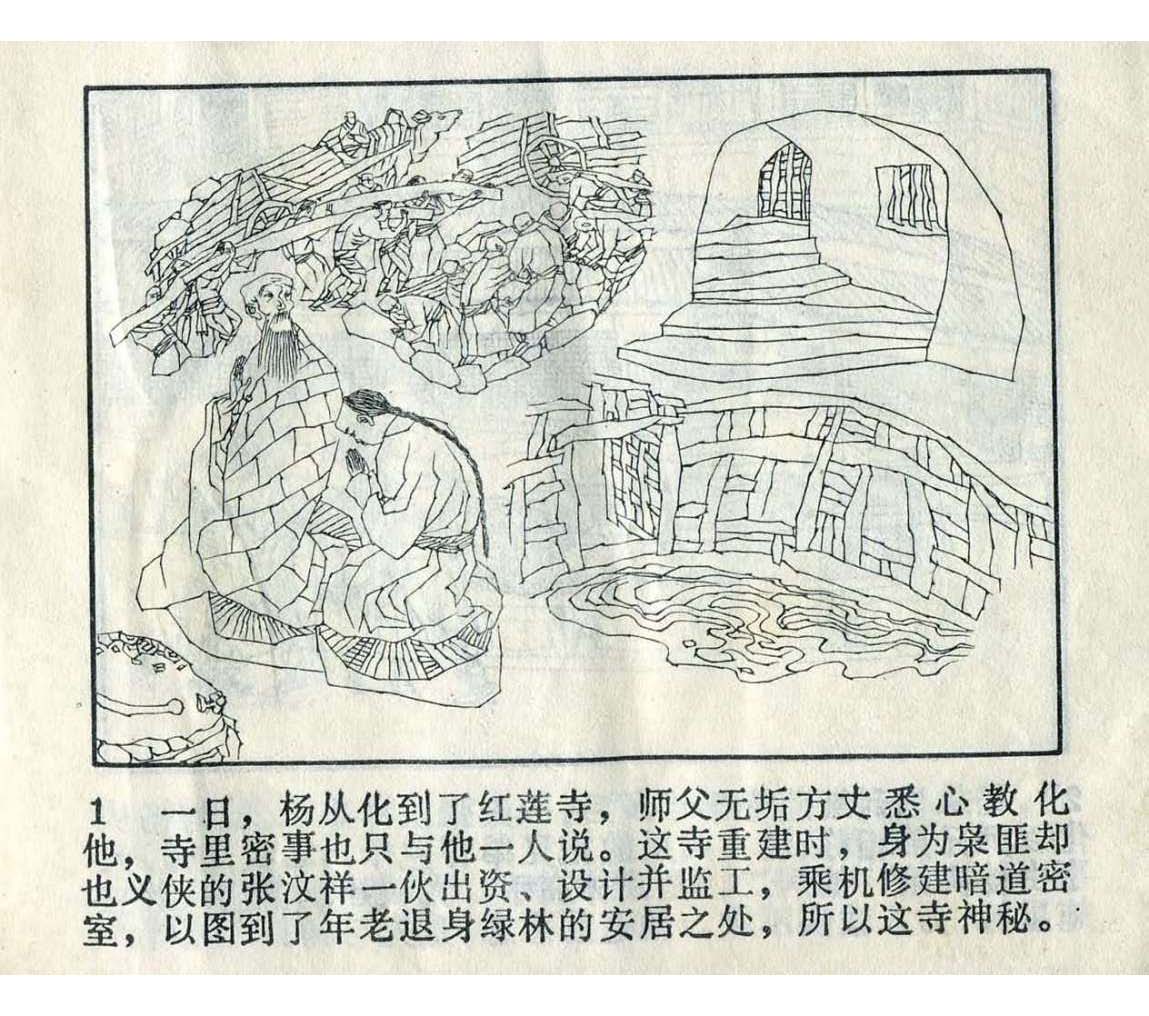 1 一日，杨从化到了红莲寺，师父无垢方丈悉心教化
他，寺里密事也只与他一人说。这寺重建时，身为枭匪却
也义侠的张汶祥一伙出资、设计并监工，乘机修建暗道密
室，以图到了年老退身绿林的安居之处，所以这寺神秘。